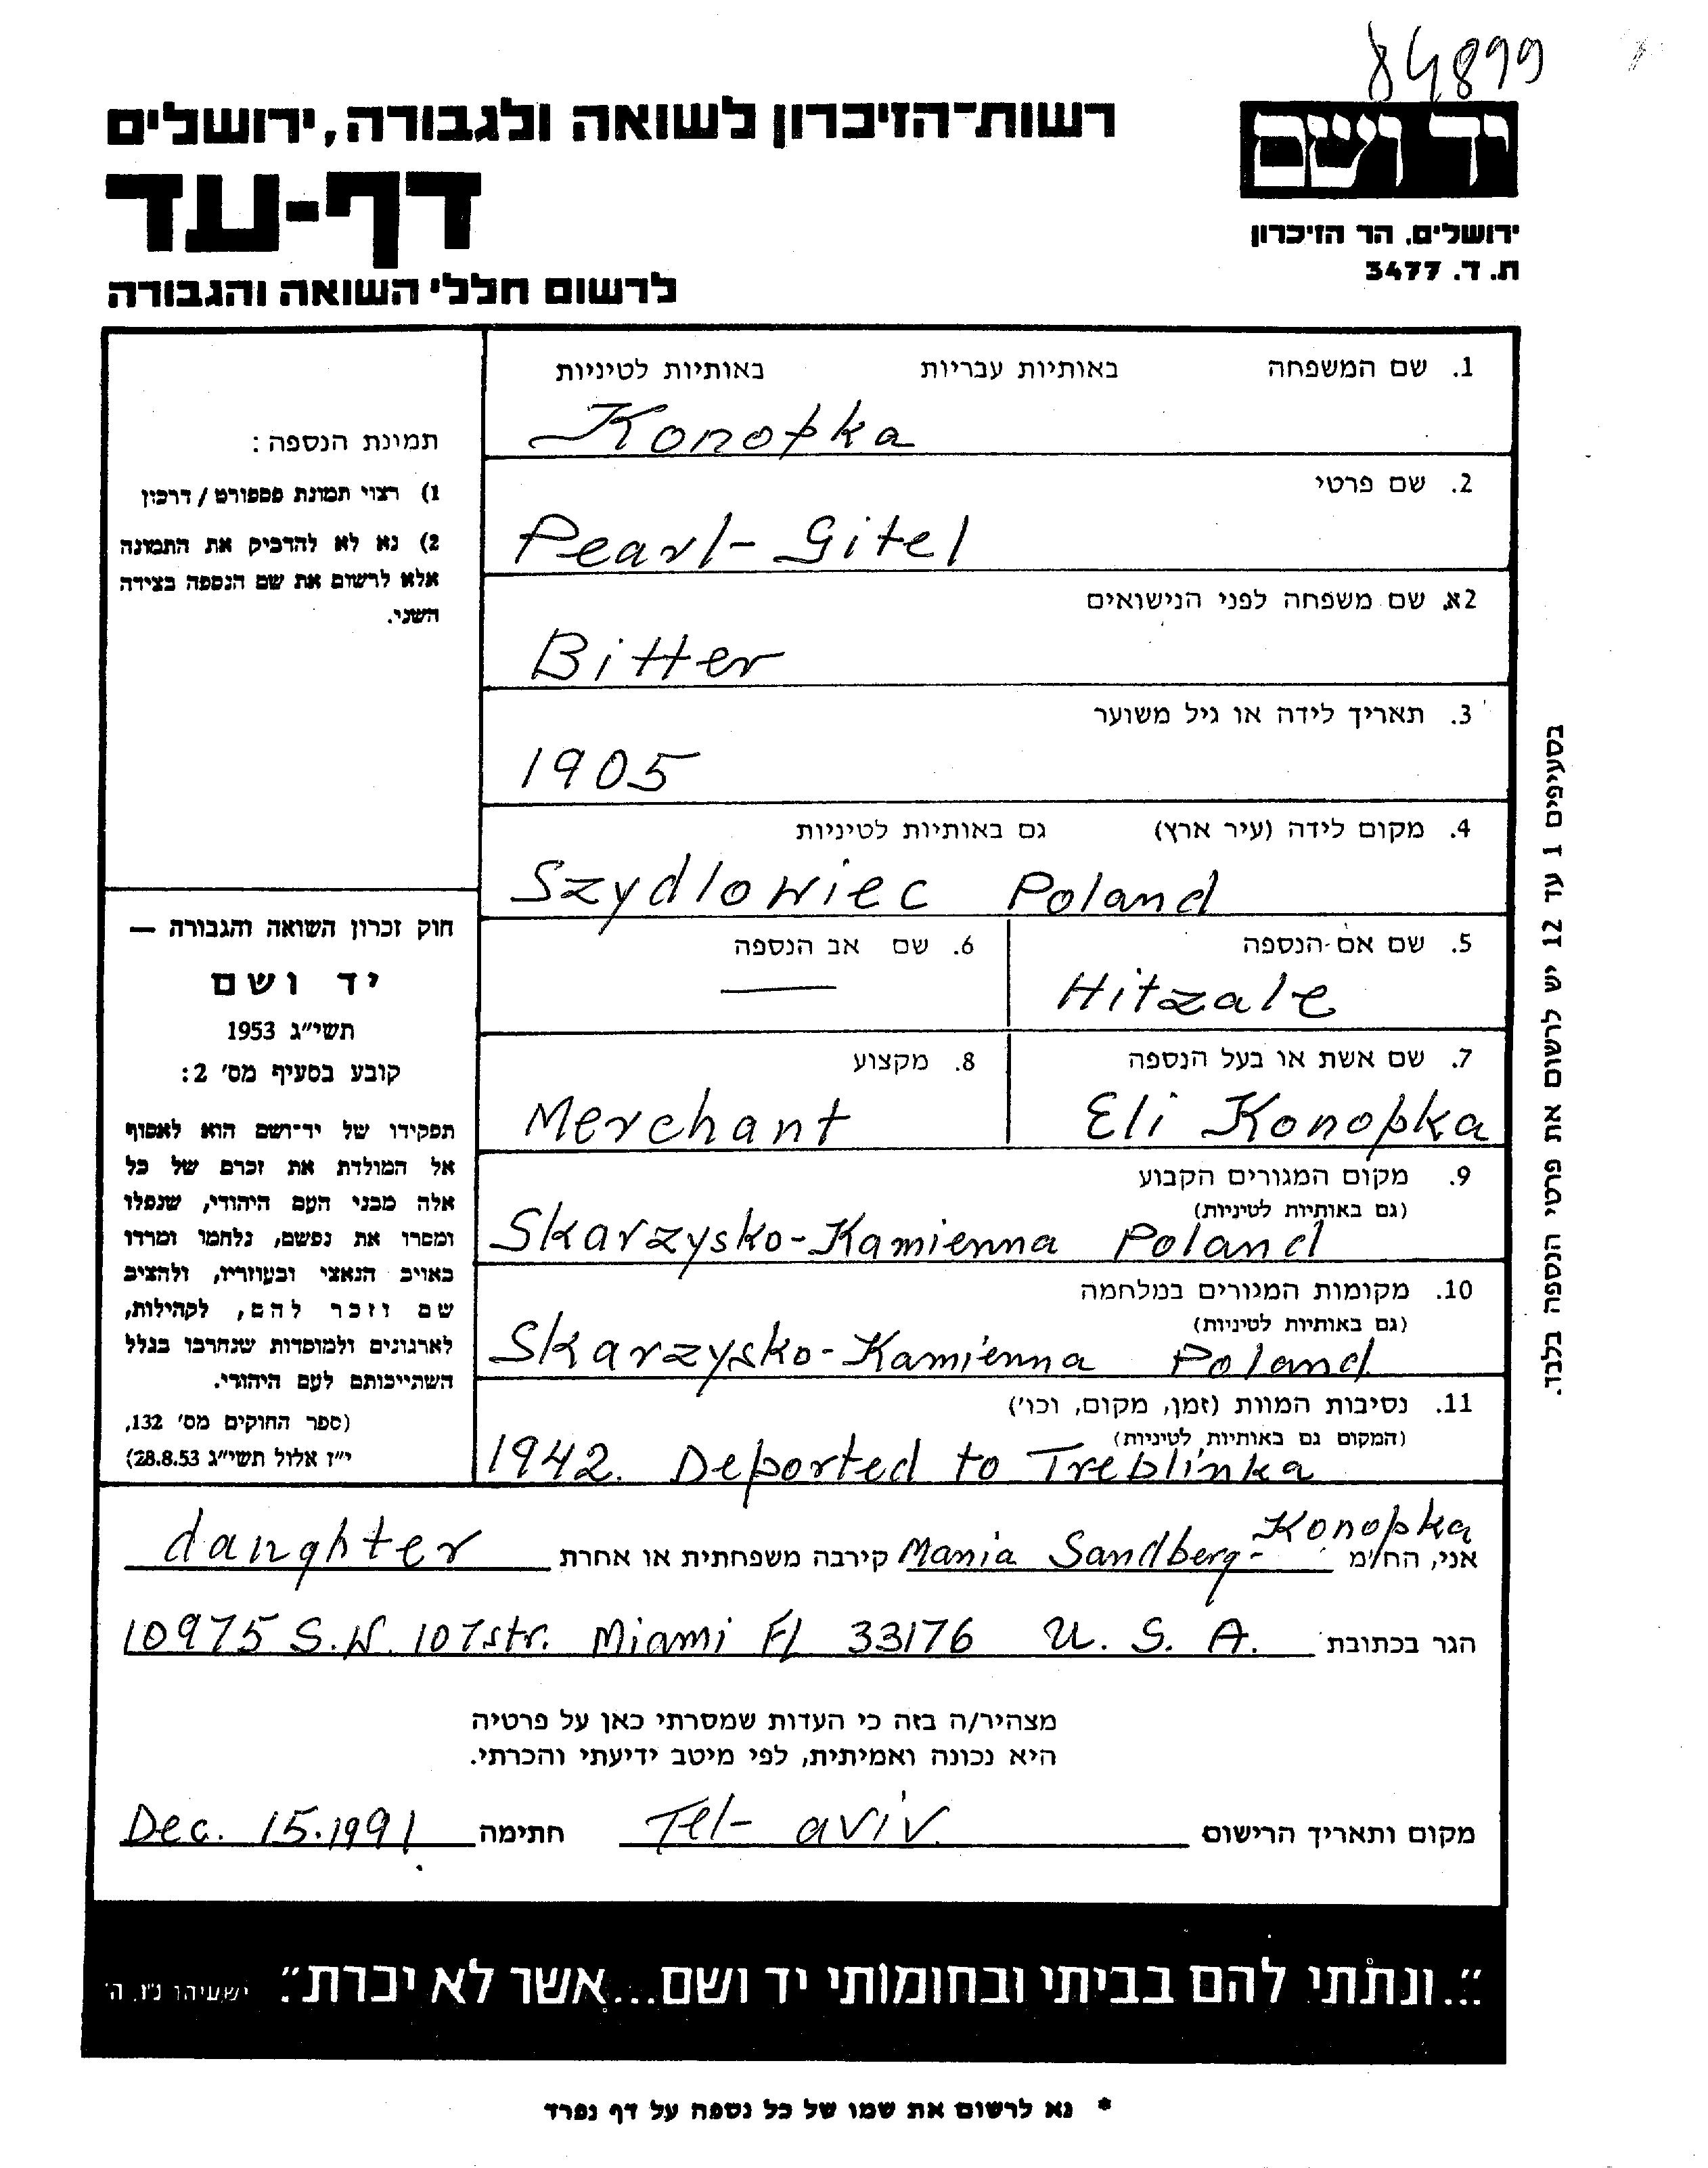 84899
רשות־הזיכרון לשואה ולגבורה, ירושלים
יד ושם
דף-עד
ירושלים, הר הזיכרון
ת. ד. 3477
לרשום חללי השואה והגבורה
1. שם המשפחה באותיות עבריות באותיות לטיניות
Konopka
2. שם פרטי
Pearl-Gitel
2א. שם משפחה לפני הנישואים
Bitter
3. תאריך לידה או גיל משוער
1905
4. מקום לידה (עיר ארץ) גם באותיות לטיניות
Szydlowiec Poland
5. שם אם-הנספה
Hitzale
6. שם אב הנספה
—
7. שם אשת או בעל הנספה
Eli Konopka
8. מקצוע
Merchant
9. מקום המגורים הקבוע
(גם באותיות לטיניות)
Skarzysko-Kamienna Poland
10. מקומות המגורים במלחמה
(גם באותיות לטיניות)
Skarzysko-Kamienna Poland
11. נסיבות המוות (זמן, מקום, וכו')
(המקום גם באותיות לטיניות)
1942. Deported to Treblinka
תמונת הנספה:
1) רצוי תמונת פספורט / דרכון
2) נא לא להדביק את התמונה
אלא לרשום את שם הנספה בצידה
השני.
חוק זכרון השואה והגבורה —
יד ושם
תשי"ג 1953
קובע בסעיף מס' 2:
תפקידו של יד-ושם הוא לאסוף
אל המולדת את זכרם של כל
אלה מבני העם היהודי, שנפלו
ומסרו את נפשם, נלחמו ומרדו
באויב הנאצי ובעוזריו, ולהציב
שם וזכר להם, לקהילות,
לארגונים ולמוסדות שנחרבו בגלל
השתייכותם לעם היהודי.
(ספר החוקים מס' 132,
י"ז אלול תשי"ג 28.8.53)
בסעיפים 1 עד 12 יש לרשום את פרטי הנספה בלבד.
אני, הח"מ Mania Sandberg-Konopka קירבה משפחתית או אחרת daughter
הגר בכתובת 10975 S.W. 107str. Miami Fl 33176 U. S. A.
מצהיר/ה בזה כי העדות שמסרתי כאן על פרטיה
היא נכונה ואמיתית, לפי מיטב ידיעתי והכרתי.
מקום ותאריך הרישום Tel-aviv חתימה Dec. 15.1991
"...ונתתי להם בביתי ובחומותי יד ושם...אשר לא יכרת". ישעיהו נ"ו, ה'
* נא לרשום את שמו של כל נספה על דף נפרד